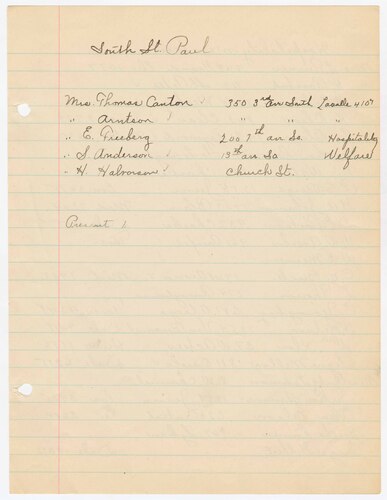 South St. Paul
Mrs. Thomas Canton √ 350 3rd av South Lasalle 4107
" Arntson √ " " "
" E. Freeberg √ 200 7th av. So. Hospitality
" S. Anderson √ 13th av. So Welfare
" H. Halvorson √ Church St.
Precinct 1.